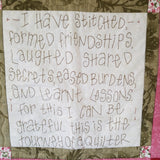 I HAVE STITCHED
FORMED FRIENDSHIPS,
LAUGHED SHARED
SECRETS EASED BURDENS,
AND LEARNT LESSONS
FOR THIS I CAN BE
GRATEFUL THIS IS THE
JOURNEY OF A QUILTER